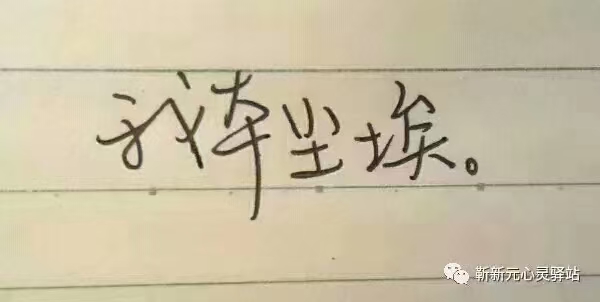 我本尘埃。
靳新元心灵驿站